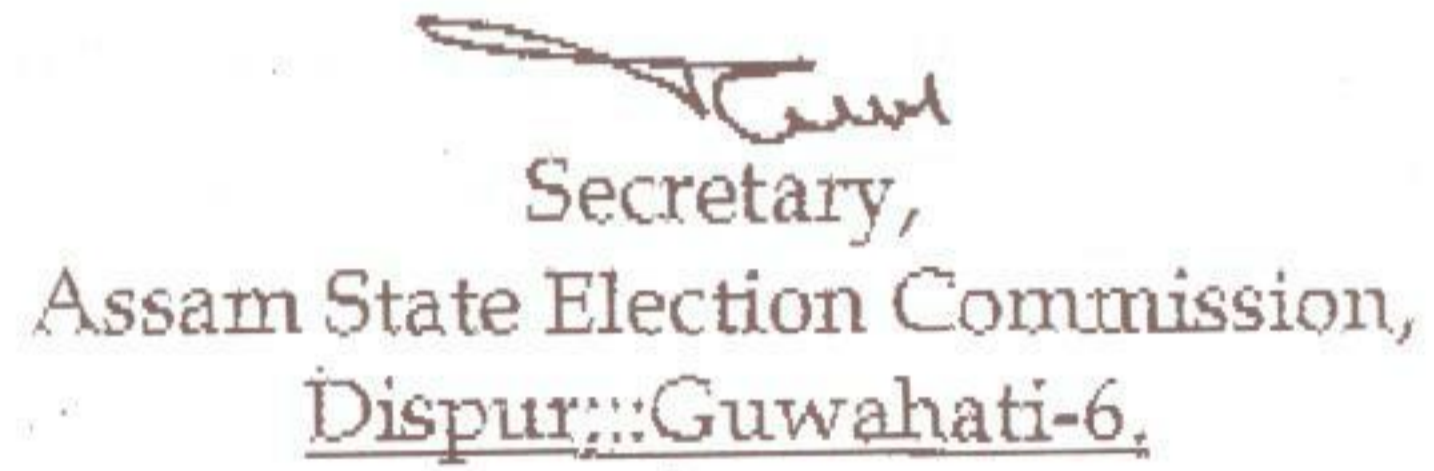 Secretary,
Assam State Election Commission,
Dispur:::Guwahati-6.